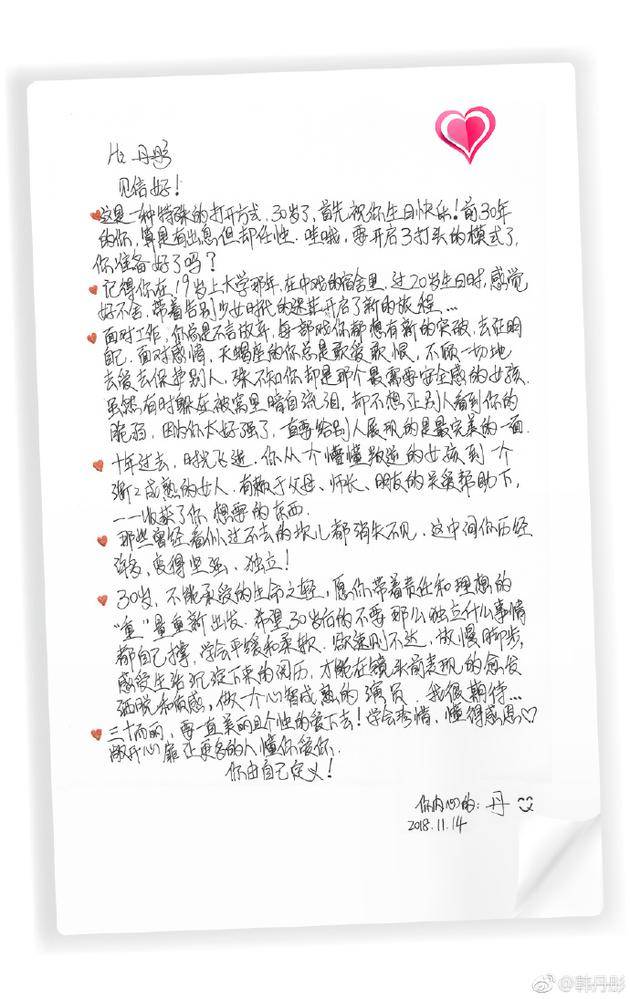 Hi 丹彤
见信好！
这是一种特殊的打开方式，30岁了，首先祝你生日快乐！前30年
的你，算是有出息但却任性。哇哦，要开启3打头的模式了，
你准备好了吗？
记得你在19岁上大学那年，在中戏的宿舍里，过20岁生日时，感觉
好不舍，带着告别少女时代的迷茫开启了新的旅程...
面对工作，你总是不言放弃，每部戏你都想有新的突破，去证明
自己。面对感情，天蝎座的你总是敢爱敢恨，不顾一切地
去爱去保护别人，殊不知你却是那个最需要安全感的女孩。
虽然有时躲在被窝里暗自流泪，却不想让别人看到你的
脆弱，因为你太好强了，一直要给别人展现的是最完美的一面。
十年过去，时光飞逝，你从一个懵懂叛逆的女孩到一个
渐渐成熟的女人，有赖于父母、师长、朋友的关爱帮助下，
一一收获了你想要的东西。
那些曾经看似过不去的坎儿都消失不见，这中间你历经
许多，变得坚强、独立！
30岁，不能承受的生命之轻，愿你带着责任和理想的
“重”量重新出发。希望30岁后的不要那么独立什么事情
都自己撑，学会平缓和柔软。欲速则不达，放慢脚步，
感受生活沉淀下来的阅历，才能在镜头前表现的愈发
洒脱和质感，做一个心智成熟的演员。我很期待...
三十而丽，要一直美丽且个性的爱下去！学会矫情，懂得感恩♡
敞开心扉让更多的人懂你爱你。
你由自己定义！
你内心的：丹
2018.11.14
@韩丹彤